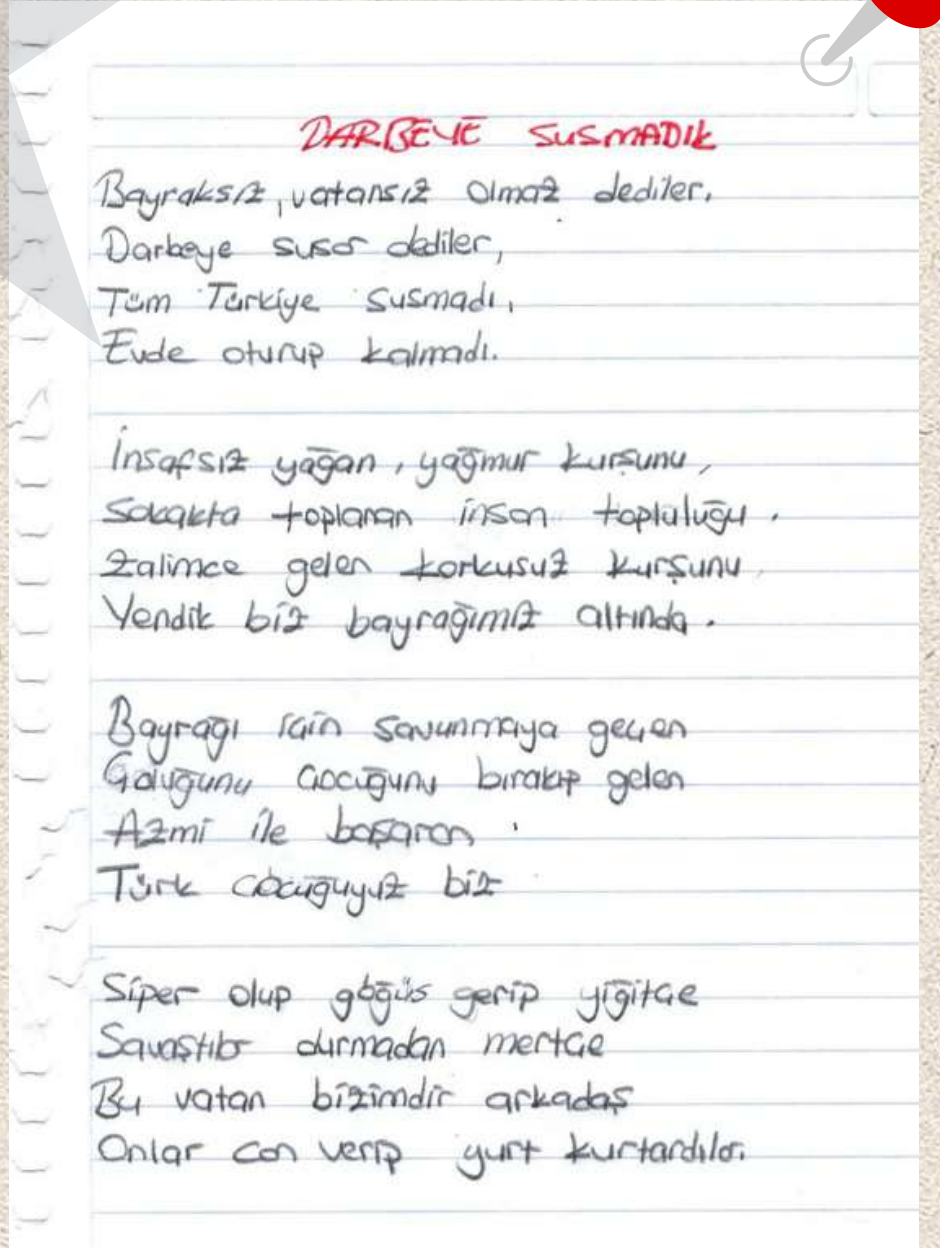 DARBEYE SUSMADIK
Bayraksız, vatansız olmaz dediler,
Darbeye susar dediler,
Tüm Türkiye susmadı,
Evde oturup kalmadı.
İnsafsız yağan, yağmur kurşunu,
Sokakta toplanan insan topluluğu.
Zalimce gelen korkusuz kurşunu,
Yendik biz bayrağımız altında.
Bayrağı için savunmaya geçen
Çoluğunu çocuğunu bırakıp gelen
Azmi ile başaran
Türk çocuğuyuz biz
Siper olup göğüs gerip yiğitçe
Savaştılar durmadan mertçe
Bu vatan bizimdir arkadaş
Onlar can verip yurt kurtardılar.